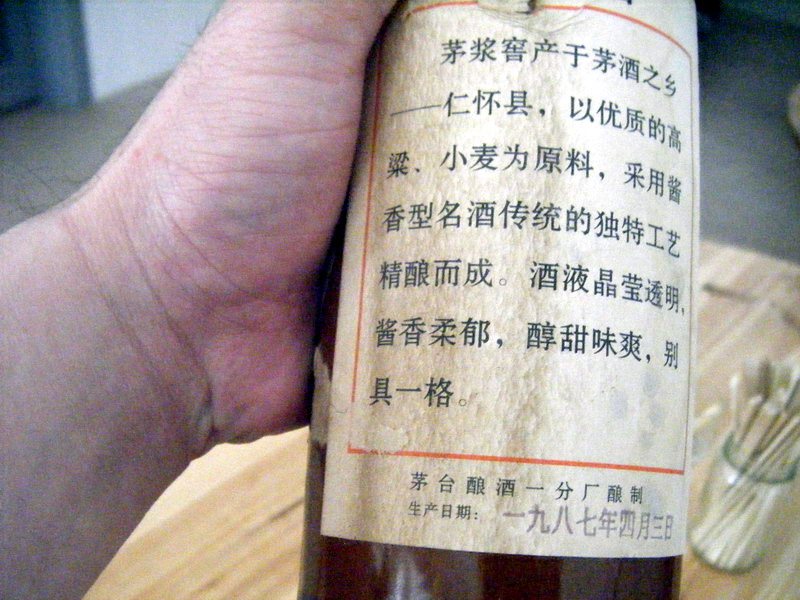 茅浆窖产于茅酒之乡
——仁怀县，以优质的高
粱、小麦为原料，采用酱
香型名酒传统的独特工艺
精酿而成。酒液晶莹透明，
酱香柔郁，醇甜味爽，别
具一格。
茅台酿酒一分厂酿制
生产日期：一九八七年四月三日